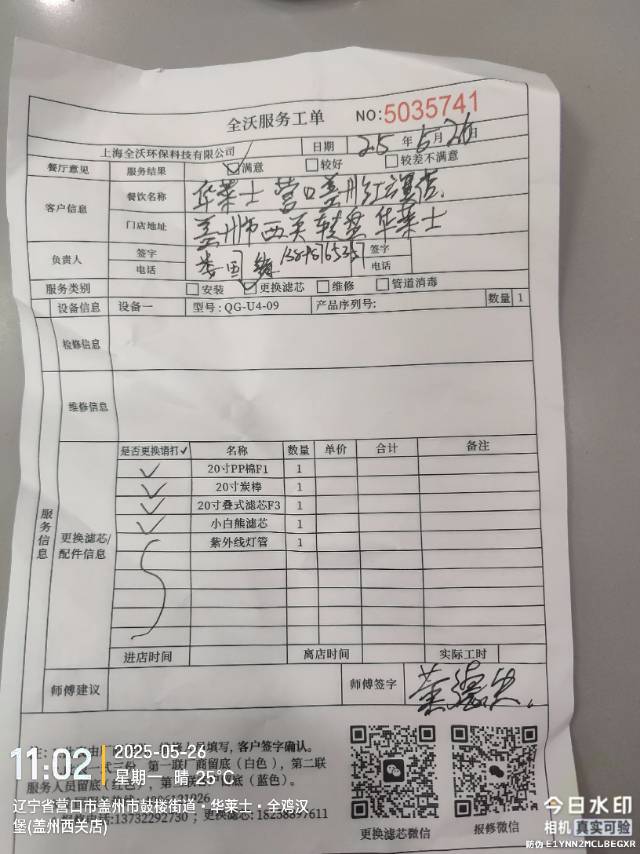 全沃服务工单
NO:5035741
上海全沃环保科技有限公司 日期 25年5月26日
餐厅意见 服务结果 满意 较好 较差不满意
客户信息 餐饮名称 华莱士 营口盖州红运店
门店地址 盖州市西关转盘华莱士
负责人 签字 李国 签字
电话 电话
服务类别 安装 更换滤芯 维修 管道消毒
设备信息 设备一 型号: QG-U4-09 产品序列号: 数量 1
检修信息
维修信息
服务信息
更换滤芯/配件信息
是否更换请打✓ 名称 数量 单价 合计 备注
✓ 20寸PP棉F1 1
✓ 20寸炭棒 1
✓ 20寸叠式滤芯F3 1
✓ 小白熊滤芯 1
紫外线灯管 1
进店时间 离店时间 实际工时
师傅建议 师傅签字
填写,客户签字确认。
一式三份,第一联厂商留底(白色),第二联
服务人员留底(红色),第 底(蓝色)。
13732292730; 18258897611
更换滤芯微信 报修微信
11:02 2025-05-26
星期一 晴 25℃
辽宁省营口市盖州市鼓楼街道·华莱士·全鸡汉
堡(盖州西关店)
今日水印
相机 真实可验
防伪 E1YNN2MCLBEGXR